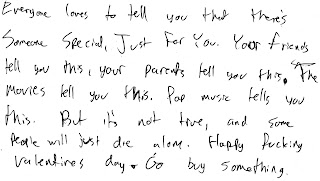 Everyone loves to tell you that there's
Someone Special, Just For You. Your friends
tell you this, your parents tell you this. The
movies tell you this. Pop music tells you
this. But it's not true, and some
people will just die alone. Happy fucking
valentines day. Go buy something.